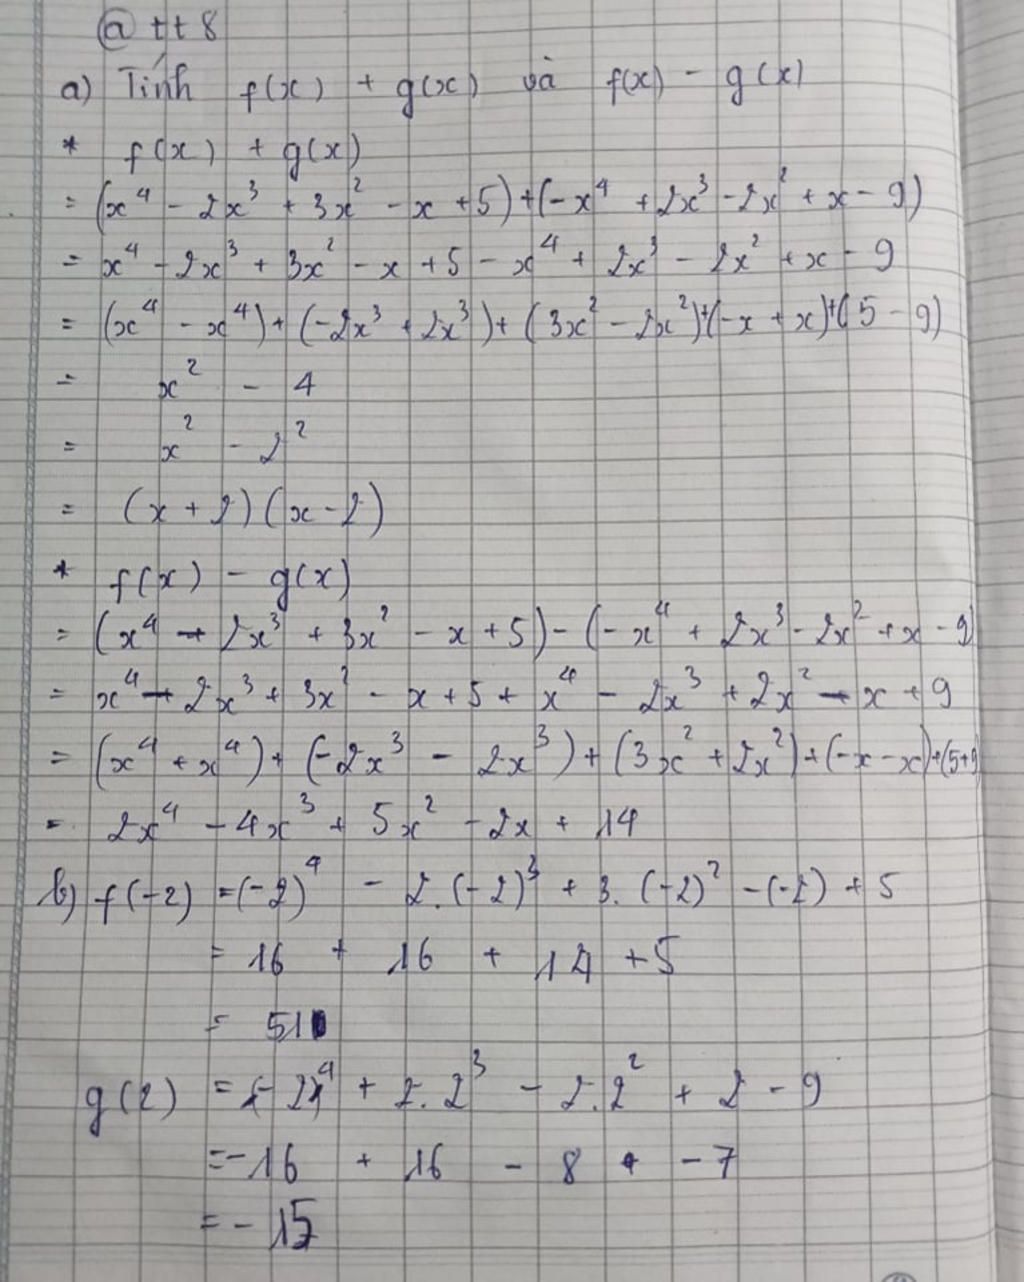 @ tt 8
a) Tính f(x) + g(x) và f(x) - g(x)
* f(x) + g(x)
= (x⁴ - 2x³ + 3x² - x + 5) + (-x⁴ + 2x³ - 2x² + x - 9)
= x⁴ - 2x³ + 3x² - x + 5 - x⁴ + 2x³ - 2x² + x - 9
= (x⁴ - x⁴) + (-2x³ + 2x³) + (3x² - 2x²) + (-x + x) + (5 - 9)
= x² - 4
= x² - 2²
= (x + 2)(x - 2)
* f(x) - g(x)
= (x⁴ - 2x³ + 3x² - x + 5) - (-x⁴ + 2x³ - 2x² + x - 9)
= x⁴ - 2x³ + 3x² - x + 5 + x⁴ - 2x³ + 2x² - x + 9
= (x⁴ + x⁴) + (-2x³ - 2x³) + (3x² + 2x²) + (-x - x) + (5+9
= 2x⁴ - 4x³ + 5x² - 2x + 14
b) f(-2) = (-2)⁴ - 2.(-2)³ + 3.(-2)² - (-2) + 5
= 16 + 16 + 14 + 5
= 51
g(2) = -2⁴ + 2.2³ - 2.2² + 2 - 9
= -16 + 16 - 8 - 7
= - 15